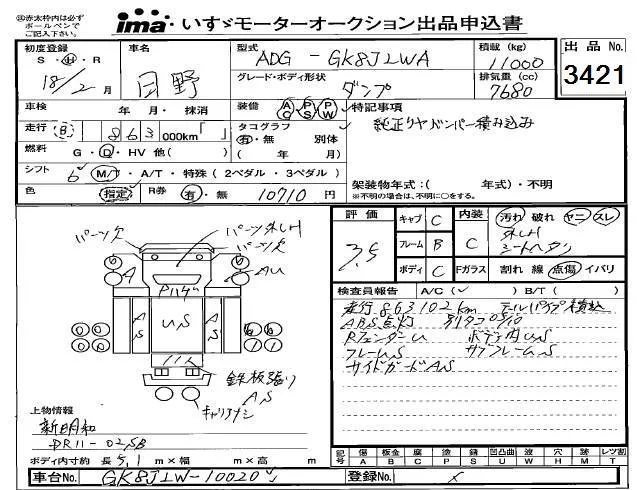 ㊟赤太枠内は必ず
ボールペンで
ご記入下さい。
ima いすゞモーターオークション出品申込書
初度登録
S・H・R
18/2月
車名
日野
型式
ADG-GK8JLWA
積載(kg)
11000
出品No.
3421
グレード・ボディ形状
ダンプ
排気量(cc)
7680
車検 年・月・抹消
装備 AC PS PW
特記事項
純正リヤバンパー積み込み
走行 863 000km「 」
タコグラフ
有・無 別体
( 年 月)
燃料 G・D・HV 他( )
シフト 6 M/T・A/T・特殊(2ペダル・3ペダル)
架装物年式:( 年式)・不明
※不明の場合は、不明に○をする。
色 指定 R券 有・無 10710円
評価
3.5
キャブ C
フレーム B
ボディ C
内装 C
Fガラス
汚れ 破れ ヤニ スレ
シートヘタリ
割れ 線 点傷 イバリ
検査員報告 A/C(✓) B/T( )
走行863102km テールパイプ積込
A.B.S点灯
RフェンダーU ボデー内US
フレームS サブフレームS
サイドガードAS
パーツ欠
パーツ外しH
A
AU
AS
US
AS
鉄板張り
AS
キャリアナシ
上物情報
新明和
DR11-02SB
ボディ内寸約 長5.1m×幅 m×高 m
記号 傷A 板金B 腐C 塗P 錆S 凹凸曲U 波W 穴H 跡M レツ割T
車台No. GK8JLW-10020
登録No. ×